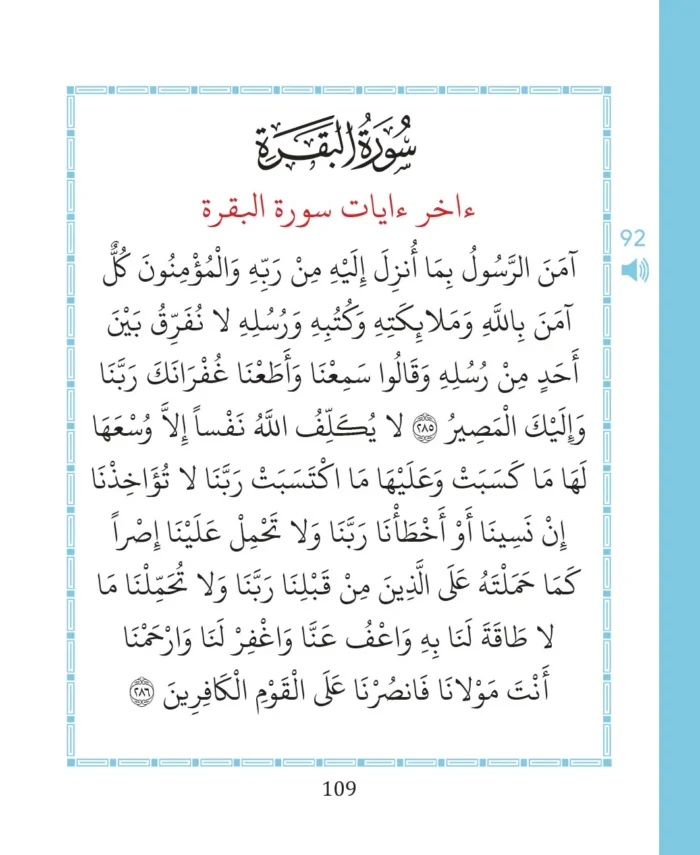 سُورَةُ البَقَرَةِ
ءاخر ءايات سورة البقرة
92
آمَنَ الرَّسُولُ بِمَا أُنزِلَ إِلَيْهِ مِنْ رَبِّهِ وَالْمُؤْمِنُونَ كُلٌّ
آمَنَ بِاللَّهِ وَمَلائِكَتِهِ وَكُتُبِهِ وَرُسُلِهِ لا نُفَرِّقُ بَيْنَ
أَحَدٍ مِنْ رُسُلِهِ وَقَالُوا سَمِعْنَا وَأَطَعْنَا غُفْرَانَكَ رَبَّنَا
وَإِلَيْكَ الْمَصِيرُ ٢٨٥ لا يُكَلِّفُ اللَّهُ نَفْساً إِلاَّ وُسْعَهَا
لَهَا مَا كَسَبَتْ وَعَلَيْهَا مَا اكْتَسَبَتْ رَبَّنَا لا تُؤَاخِذْنَا
إِنْ نَسِينَا أَوْ أَخْطَأْنَا رَبَّنَا وَلا تَحْمِلْ عَلَيْنَا إِصْراً
كَمَا حَمَلْتَهُ عَلَى الَّذِينَ مِنْ قَبْلِنَا رَبَّنَا وَلا تُحَمِّلْنَا مَا
لا طَاقَةَ لَنَا بِهِ وَاعْفُ عَنَّا وَاغْفِرْ لَنَا وَارْحَمْنَا
أَنْتَ مَوْلانَا فَانصُرْنَا عَلَى الْقَوْمِ الْكَافِرِينَ ٢٨٦
109